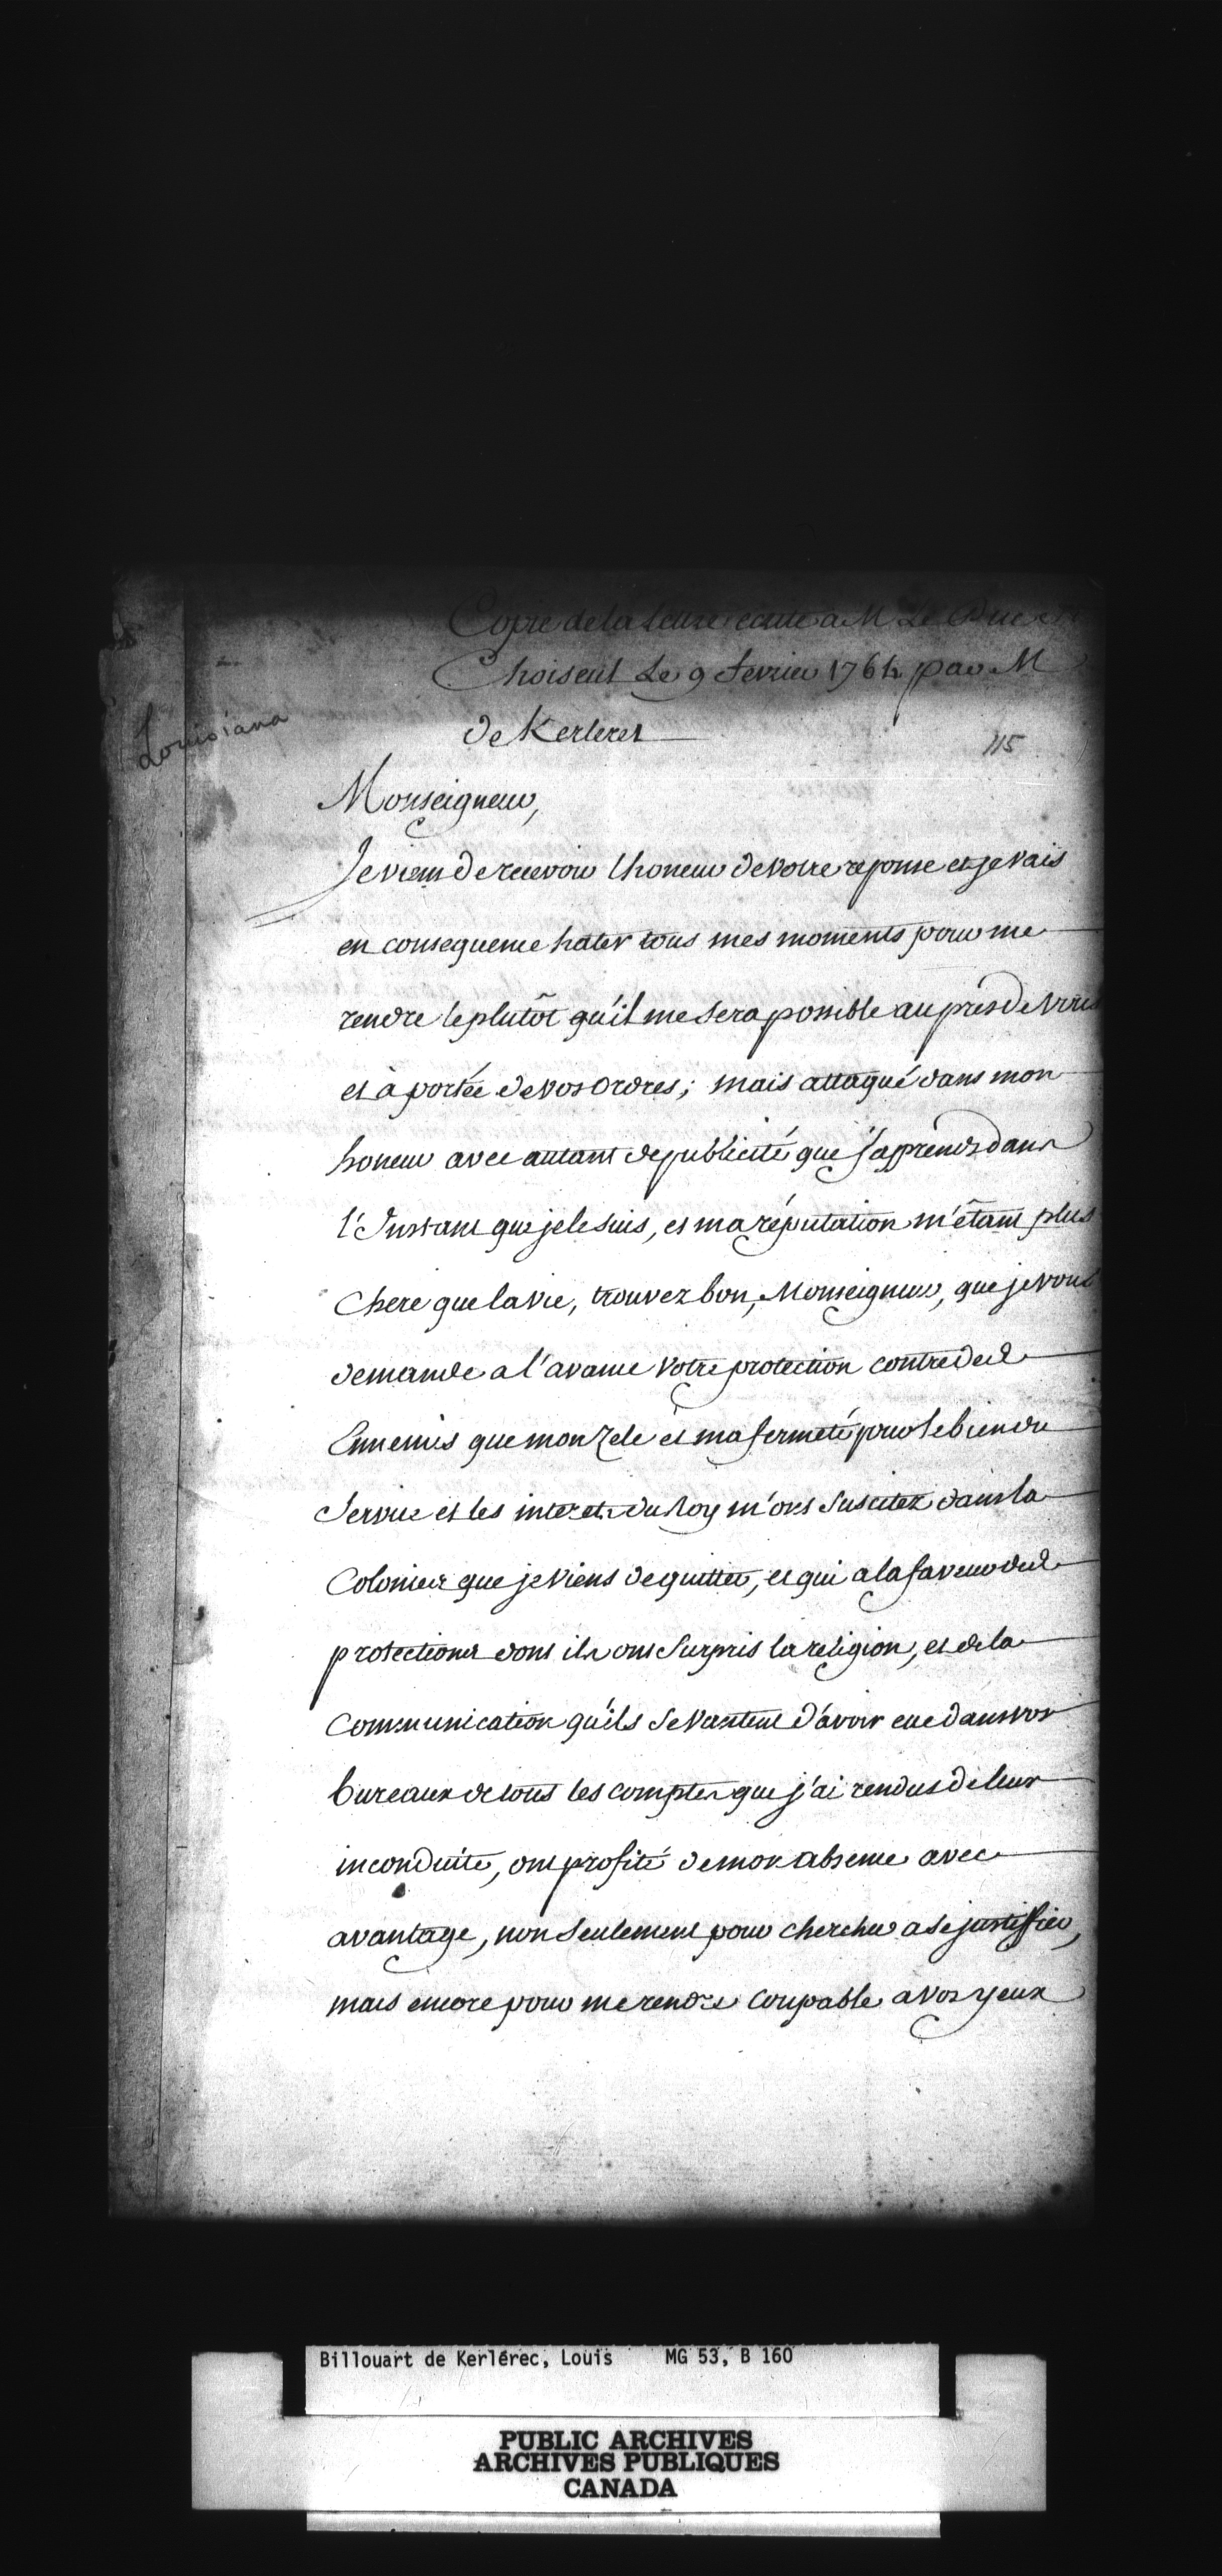 Copie de la Lettre ecrite a M Le Duc de
Choiseul Le 9 fevrier 1764 par M
de Kerleret
Louisiana
115
Monseigneur,
Je viens de recevoir l'honeur de votre reponse et je vais
en consequence hater tous mes moments pour me
rendre le plutôt qu'il me sera possible auprès de Vous
et à portée de vos Ordres; mais attaqué dans mon
honeur avec autant de publicité que j'apprends dans
l'Instant que je le suis, et ma réputation m'étant plus
Chere que la vie, trouvez bon, Monseigneur, que je vous
demande a l'avance votre protection contre des
Ennemis que mon Zele et ma fermeté pour le bien du
Service et les interets du Roy m'ont Suscitez dans la
Colonier que je viens de quitter, et qui a la faveur des
protections dont ils ont Surpris la religion, et de la
Communication qu'ils se vantent d'avoir eue dans vos
bureaux de tous les comptes que j'ai rendus de leur
inconduite, ont profité de mon absence avec
avantage, non seulement pour chercher a se justiffier,
mais encore pour me rendre Coupable a vos yeux
Billouart de Kerlérec, Louis MG 53, B 160
PUBLIC ARCHIVES
ARCHIVES PUBLIQUES
CANADA